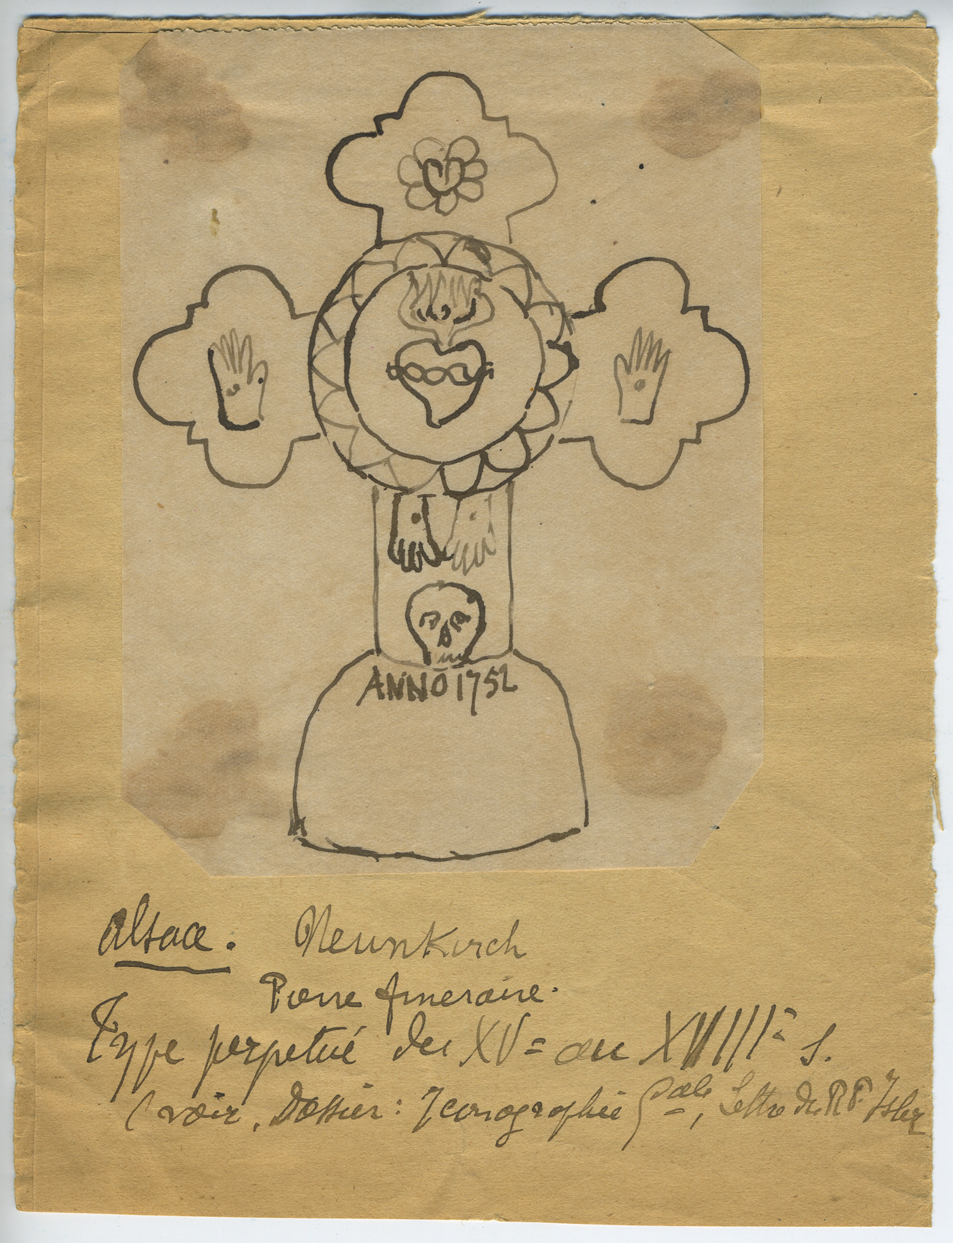 ANNO 1752
Alsace. Neunkirch
Pierre funeraire.
Type perpetué du XVe au XVIIIe s.
(voir, Dossier: Iconographie Gale, Lettre du R.P.